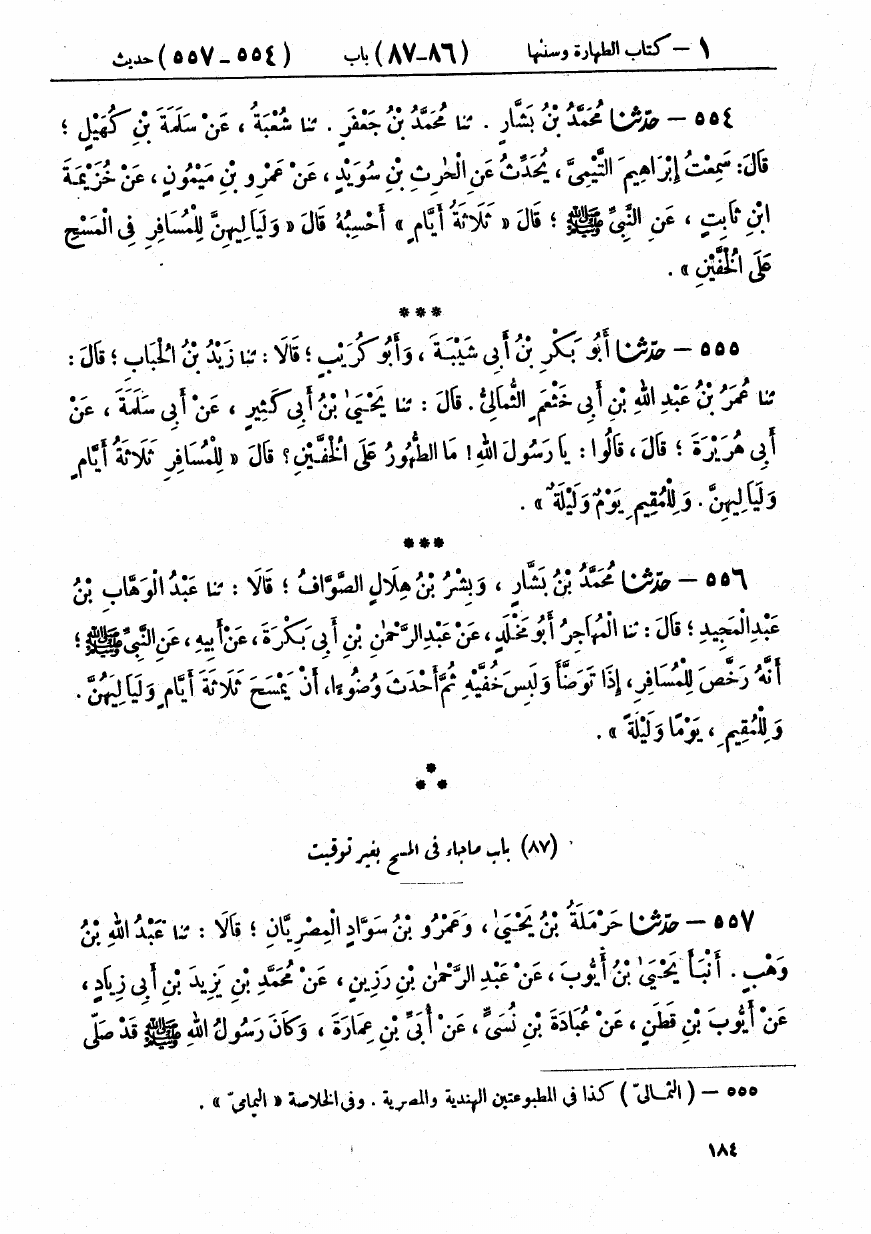 ١ – كتاب الطهارة وسننها (٨٦–٨٧) باب (٥٥٤–٥٥٧) حديث
٥٥٤ – حَدَّثَنَا مُحَمَّدُ بْنُ بَشَّارٍ . ثنا مُحَمَّدُ بْنُ جَعْفَرٍ . ثنا شُعْبَةُ ، عَنْ سَلَمَةَ بْنِ كُهَيْلٍ ؛
قَالَ : سَمِعْتُ إِبْرَاهِيمَ التَّيْمِيَّ ، يُحَدِّثُ عَنِ الْحٰرِثِ بْنِ سُوَيْدٍ ، عَنْ عَمْرِو بْنِ مَيْمُونٍ ، عَنْ خُزَيْمَةَ
ابْنِ ثَابِتٍ ، عَنِ النَّبِيِّ ﷺ ؛ قَالَ « ثَلَاثَةُ أَيَّامٍ » أَحْسِبُهُ قَالَ « وَلَيَالِيهِنَّ لِلْمُسَافِرِ فِى الْمَسْحِ
عَلَى الْخُفَّيْنِ » .
***
٥٥٥ – حَدَّثَنَا أَبُو بَكْرِ بْنُ أَبِى شَيْبَةَ ، وَأَبُو كُرَيْبٍ ؛ قَالَا : ثنا زَيْدُ بْنُ الْحُبَابِ ؛ قَالَ :
ثنا عُمَرُ بْنُ عَبْدِ اللهِ بْنِ أَبِى خَثْعَمٍ الثُّمَالِىُّ . قَالَ : ثنا يَحْيَىٰ بْنُ أَبِى كَثِيرٍ ، عَنْ أَبِى سَلَمَةَ ، عَنْ
أَبِى هُرَيْرَةَ ؛ قَالَ ، قَالُوا : يَا رَسُولَ اللهِ ! مَا الطُّهُورُ عَلَى الْخُفَّيْنِ ؟ قَالَ « لِلْمُسَافِرِ ثَلَاثَةُ أَيَّامٍ
وَلَيَالِيهِنَّ . وَلِلْمُقِيمِ يَوْمٌ وَلَيْلَةٌ » .
***
٥٥٦ – حَدَّثَنَا مُحَمَّدُ بْنُ بَشَّارٍ ، وَبِشْرُ بْنُ هِلَالٍ الصَّوَّافُ ؛ قَالَا : ثنا عَبْدُ الْوَهَّابِ بْنُ
عَبْدِ الْمَجِيدِ ؛ قَالَ : ثنا الْمُهَاجِرُ أَبُو مَخْلَدٍ ، عَنْ عَبْدِ الرَّحْمٰنِ بْنِ أَبِى بَكْرَةَ ، عَنْ أَبِيهِ ، عَنِ النَّبِيِّ ﷺ ؛
أَنَّهُ رَخَّصَ لِلْمُسَافِرِ ، إِذَا تَوَضَّأَ وَلَبِسَ خُفَّيْهِ ثُمَّ أَحْدَثَ وُضُوءًا ، أَنْ يَمْسَحَ ثَلَاثَةَ أَيَّامٍ وَلَيَالِيَهُنَّ .
وَلِلْمُقِيمِ ، يَوْمًا وَلَيْلَةً » .
***
(٨٧) باب ماجاء فى المسح بغير توقيت
٥٥٧ – حَدَّثَنَا حَرْمَلَةُ بْنُ يَحْيَىٰ ، وَعَمْرُو بْنُ سَوَّادٍ الْمِصْرِيَّانِ ؛ قَالَا : ثنا عَبْدُ اللهِ بْنُ
وَهْبٍ . أَنْبَأَ يَحْيَىٰ بْنُ أَيُّوبَ ، عَنْ عَبْدِ الرَّحْمٰنِ بْنِ رَزِينٍ ، عَنْ مُحَمَّدِ بْنِ يَزِيدَ بْنِ أَبِى زِيَادٍ ،
عَنْ أَيُّوبَ بْنِ قَطَنٍ ، عَنْ عُبَادَةَ بْنِ نُسَىٍّ ، عَنْ أُبَىِّ بْنِ عِمَارَةَ ، وَكَانَ رَسُولُ اللهِ ﷺ قَدْ صَلَّى
٥٥٥ – ( الثمالىّ ) كذا فى المطبوعتين الهندية والمصرية . وفى الخلاصة « اليمامىّ » .
١٨٤